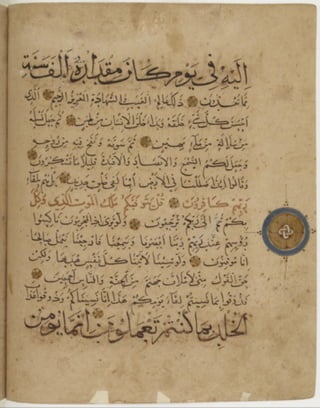 إليه في يوم كان مقداره ألف سنة
مما تعدون ذلك عالم الغيب والشهادة العزيز الرحيم الذي
أحسن كل شيء خلقه وبدأ خلق الإنسان من طين ثم جعل نسله
من سلالة من ماء مهين ثم سويه ونفخ فيه من روحه
وجعل لكم السمع والأبصار والأفئدة قليلا ما تشكرون
وقالوا أءذا ضللنا في الأرض أءنا لفي خلق جديد بل هم بلقاء
ربهم كافرون قل يتوفيكم ملك الموت الذي وكل
بكم ثم إلى ربكم ترجعون ولو ترى إذ المجرمون ناكسوا
رؤسهم عند ربهم ربنا أبصرنا وسمعنا فارجعنا نعمل صالحا
إنا موقنون ولو شئنا لآتينا كل نفس هديها ولكن
حق القول مني لأملأن جهنم من الجنة والناس أجمعين
فذوقوا بما نسيتم لقاء يومكم هذا إنا نسيناكم وذوقوا عذاب
الخلد بما كنتم تعملون إنما يؤمن